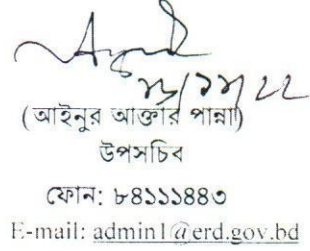 (আইনুর আক্তার পান্না)
উপসচিব
ফোন: ৮৪১১১৪৪৩
E-mail: admin1@erd.gov.bd